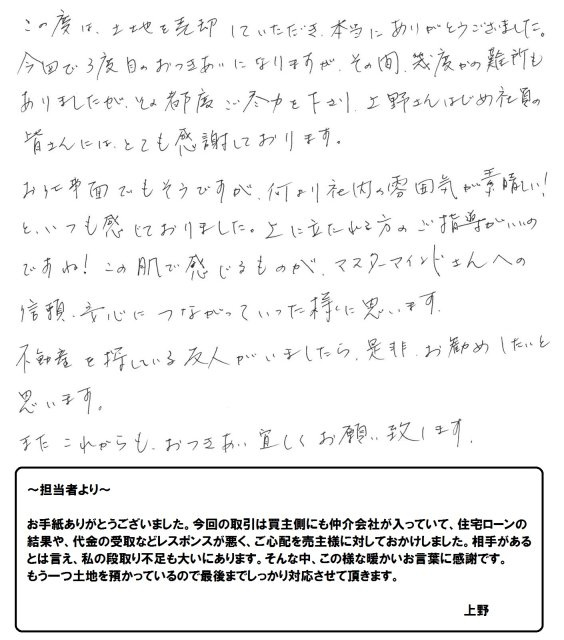 この度は、土地を売却していただき、本当にありがとうございました。
今回で3度目のおつきあいになりますが、その間、幾度かの難所も
ありましたが、その都度ご尽力を下さり、上野さんはじめ社員の
皆さんには、とても感謝しております。
お仕事面でもそうですが、何より社内の雰囲気が素晴しい!
と、いつも感じておりました。上に立たれる方のご指導がいいの
ですね!この肌で感じるものが、マスターマインドさんへの
信頼、安心につながっていった様に思います。
不動産を探している友人がいましたら、是非、お勧めしたいと
思います。
またこれからも、おつきあい宜しくお願い致します。
～担当者より～
お手紙ありがとうございました。今回の取引は買主側にも仲介会社が入っていて、住宅ローンの
結果や、代金の受取などレスポンスが悪く、ご心配を売主様に対しておかけしました。相手がある
とは言え、私の段取り不足も大いにあります。そんな中、この様な暖かいお言葉に感謝です。
もう一つ土地を預かっているので最後までしっかり対応させて頂きます。
上野